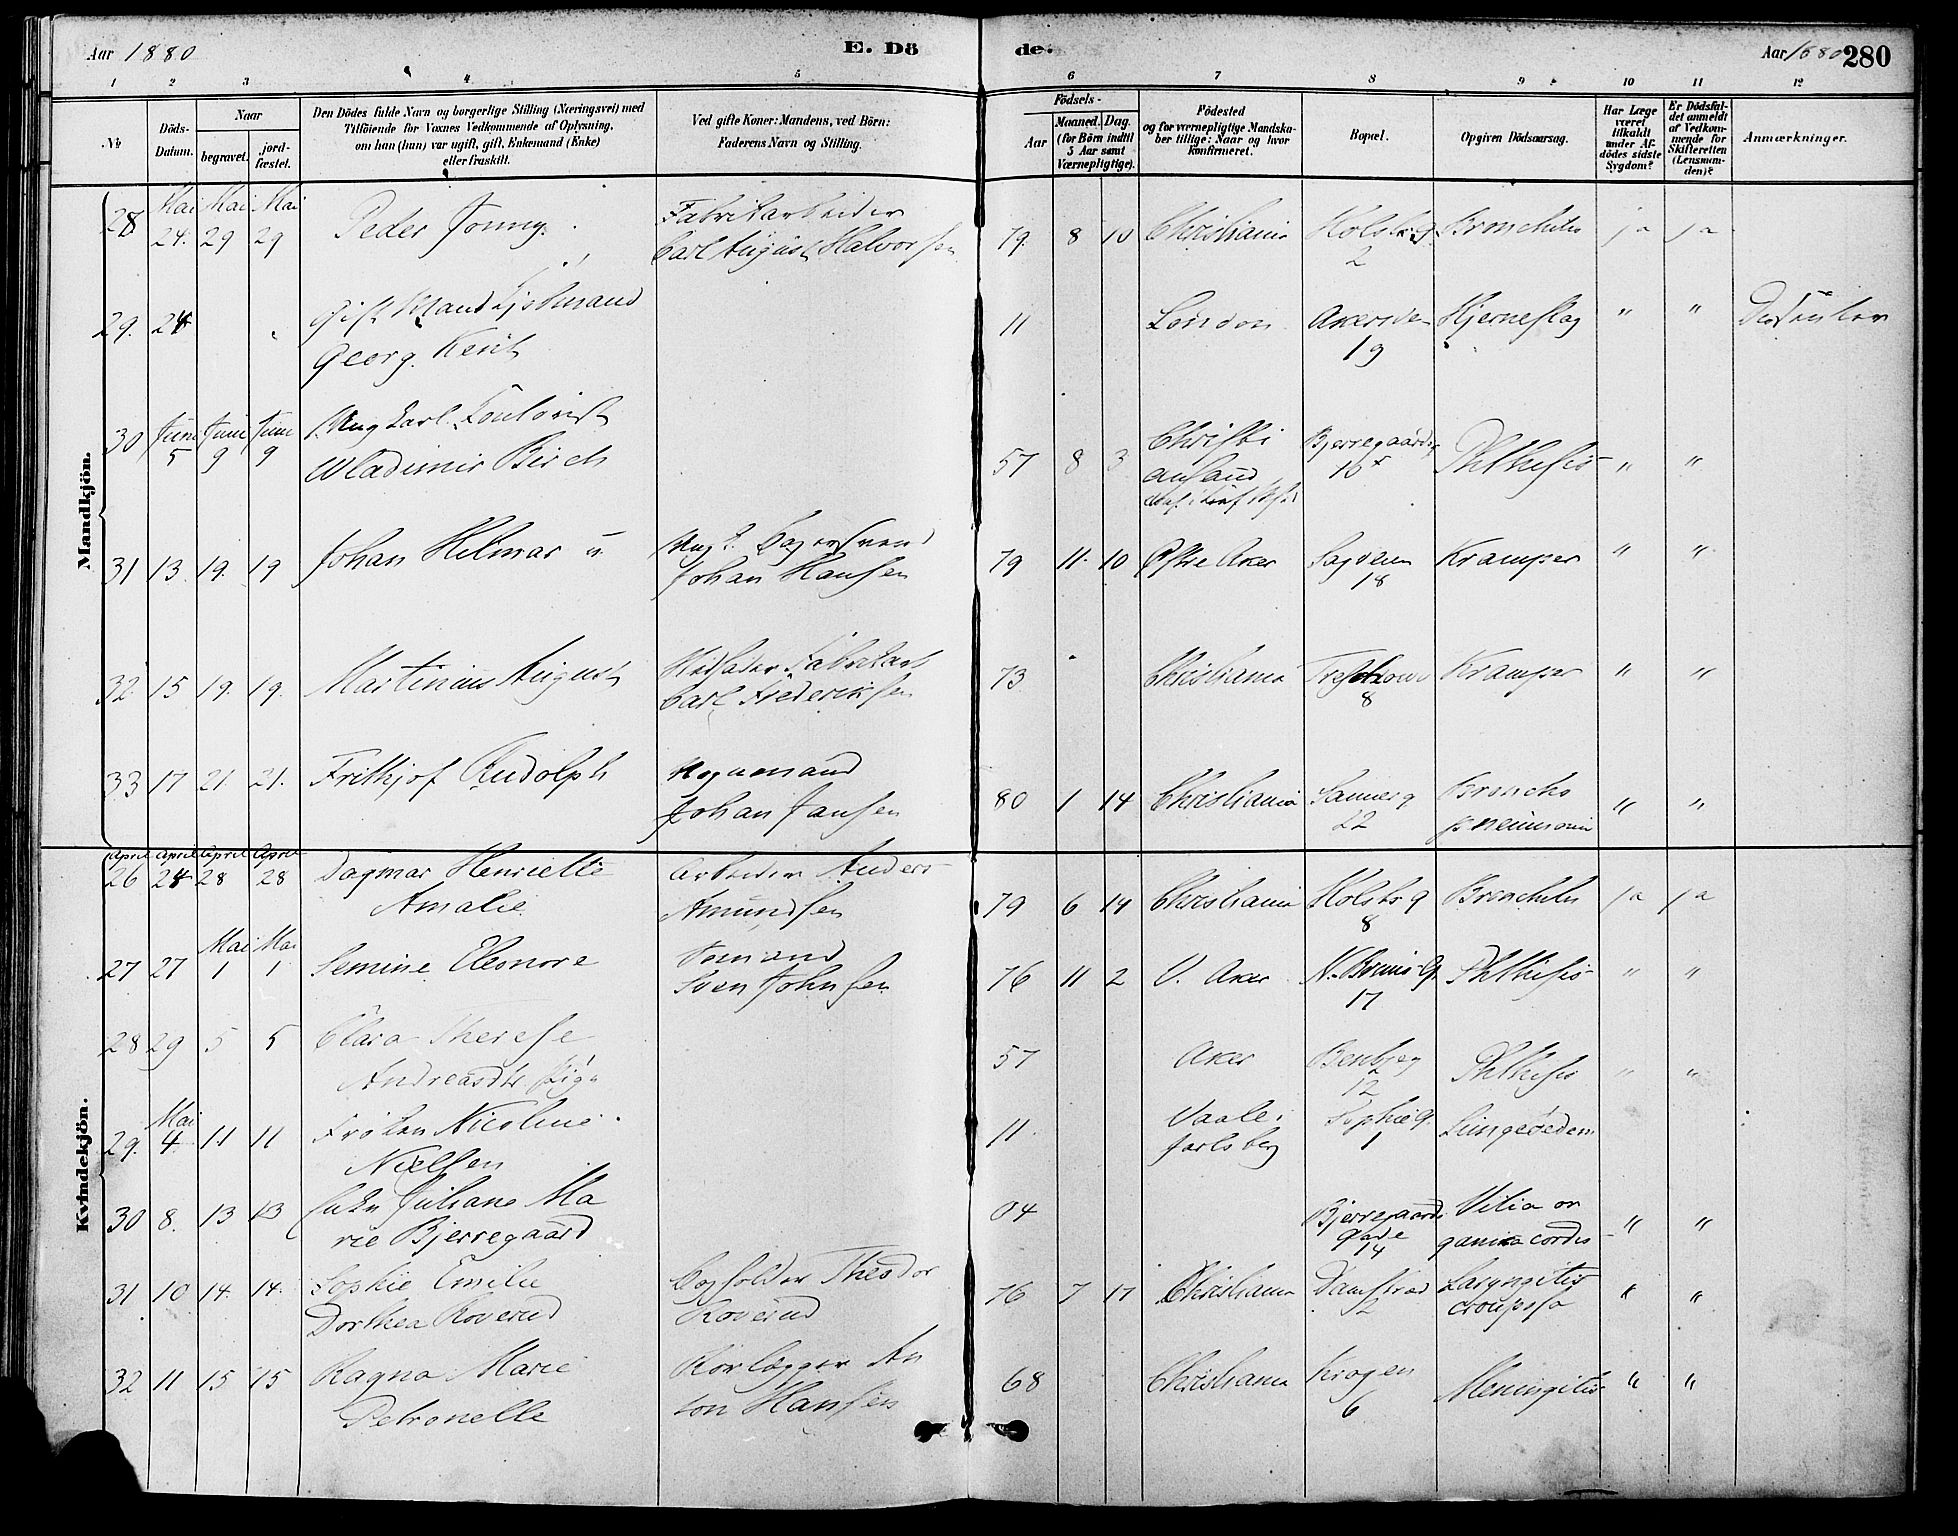 Aar 1880
E. Dö
de.
Aar 1880
280
1 2 3 4 5 6 7 8 9 10 11 12
Nr
Döds-
Datum.
Naar
begravet.
jord-
fæstet.
Den Dödes fulde Navn og borgerlige Stilling (Næringsvei) med
Tilföiende for Voxnes Vedkommende af Oplysning,
om han (hun) var ugift, gift, Enkemand (Enke)
eller fraskilt.
Ved gifte Koner: Mandens, ved Börn:
Faderens Navn og Stilling.
Födsels-
Aar
Maaned. Dag.
(for Börn indtil
5 Aar samt
Værnepligtige).
Födested
og for værnepligtige Mandska-
ber tillige: Naar og hvor
konfirmeret.
Bopæl.
Opgiven Dödsaarsag.
Har Læge
været
tilkaldt
under Af-
dödes sidste
Sygdom?
Er Dödsfal-
det anmeldt
af Vedkom-
mende for
Skifteretten
(Lensman-
den)?
Anmærkninger.
Mandkjön.
28 Mai 24. Mai 29 Mai 29
Peder Jonny.
Fabrikarbeider
Carl August Halvorsen
79. 8 10 Christiania Holstsg. 2 Bronchitis ja ja
29. 24
Gift Mand
Georg Kent
11 London 19 Hjerneslag " "
30 Juni 5 Juni 9 Juni 9
Ung Karl
Wladimir Birch
57 8 3
Christi
ansand
Bjerregaardsg
Phthisis " "
31 13. 19. 19
Johan Hilmar
Johan Hansen
79 11. 10 Østre Aker Sagveien 18 Kramper " "
32. 15 19. 19.
Martinius August
Carl Frederiksen
73 Christiania Treschows 8 Kramper " "
33 17 21. 21.
Frithjof Rudolph
Vognmand
Johan Jansen
80 1 14 Christiania Sannerg 22
Broncho
pneumonie " "
Kvindekjön.
April 26 April 24 April 28 April 28
Dagmar Henriette
Amalie
Arbeider Anders
Amundsen
79 6 14 Christiania Holstsg 8 Bronchitis ja ja
27 27 Mai 1 Mai 1
Semine Eleonore
Sømand
Sven Johnsen
76 11 2 V. Aker 17 Phthisis " "
28 29 5 5
Clara Therese
Andreasdtr Pige
57 Aker 12 Phthisis " "
29. Mai 4. 11 11
Frøken Nicoline
Nielsen
11.
Vaale i
Jarlsberg
Sophieg. 1
30 8. 13 13
Enke Juliane Ma
rie Bjerregaard
04
Bjerregaards
gade
14
Vitia or
ganica cordis " "
31 10 14. 14.
Sophie Emilie
Dorthea Koverud
Bogholder Theodor
Koverud
76 7 17 Christiania Damstræd 2
Laryngitis
crouposa " "
32 11 15 15
Ragna Marie
Petronelle
Rørlægger An
ton Hansen
68 Christiania Krogen 6 Meningitis " "